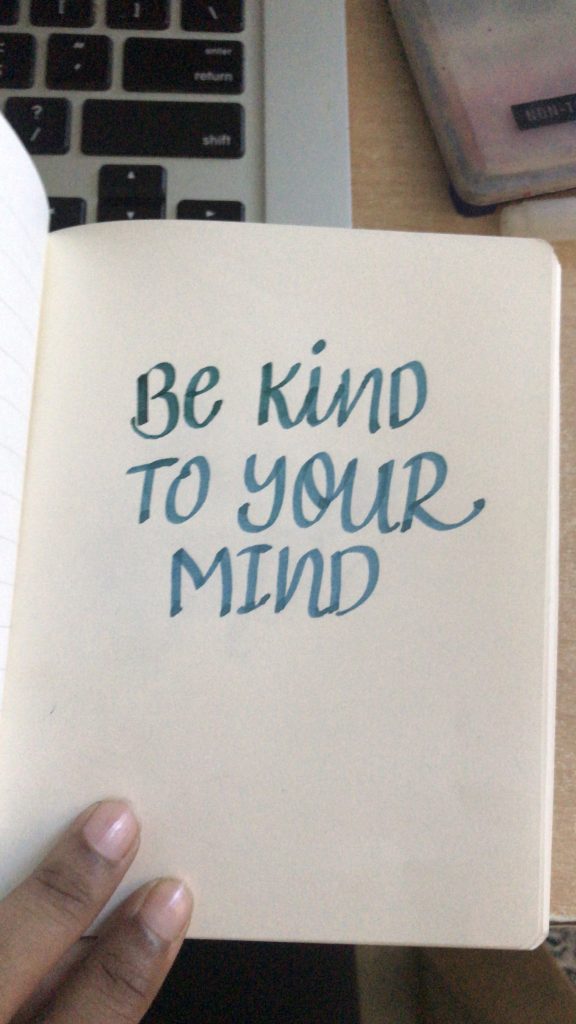 enter
return
?
/
shift
Be Kind
TO YOUR
MIND